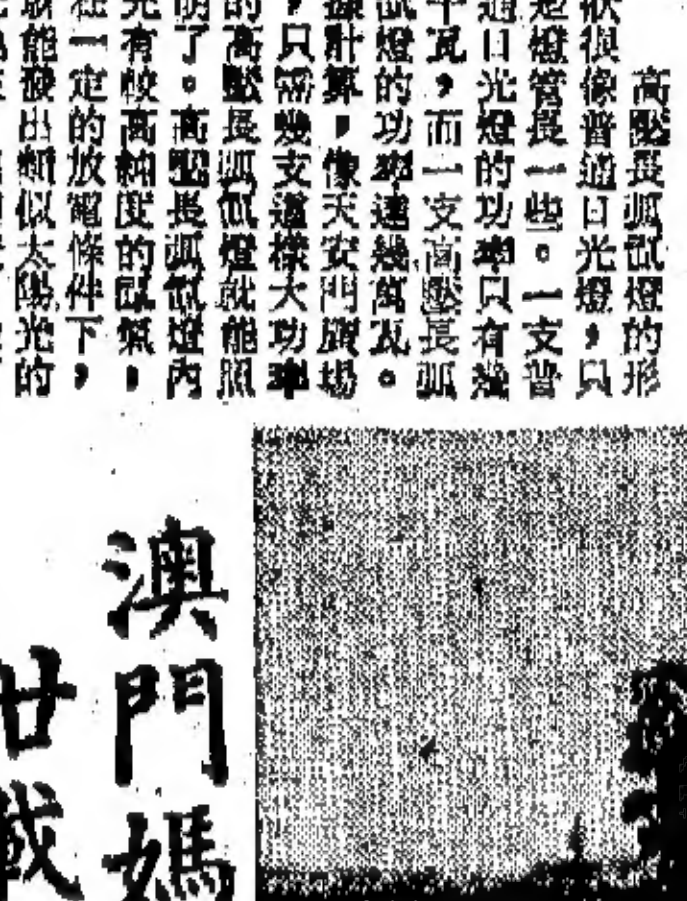 高壓長弧氙燈的形
狀很像普通日光燈，只
是燈管長一些。一支普
通日光燈的功率只有幾
十瓦，而一支高壓長弧
氙燈的功率達幾萬瓦。
據計算，像天安門廣場
，只需幾支這樣大功率
的高壓長弧氙燈就能照
明了。高壓長弧氙燈內
充有較高純度的氙氣，
在一定的放電條件下，
能發出類似太陽光的
澳門媽
廿載